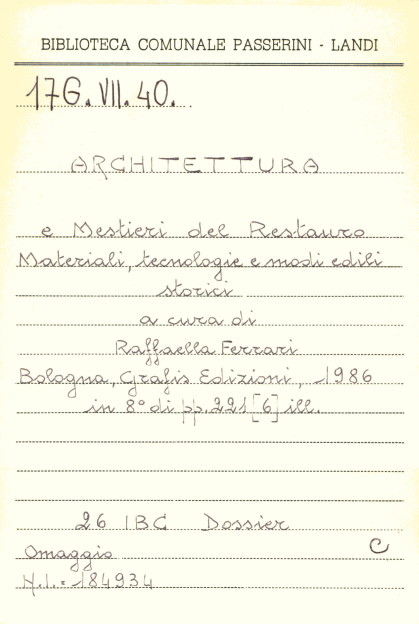 BIBLIOTECA COMUNALE PASSERINI - LANDI
17G.VII.40.
ARCHITETTURA
e Mestieri del Restauro
Materiali, tecnologie e modi edili
storici
a cura di
Raffaella Ferrari
Bologna, Grafis Edizioni, 1986
in 8° di pp. 221 [6] ill.
26 IBC Dossier
Omaggio C
N.I.= 184934